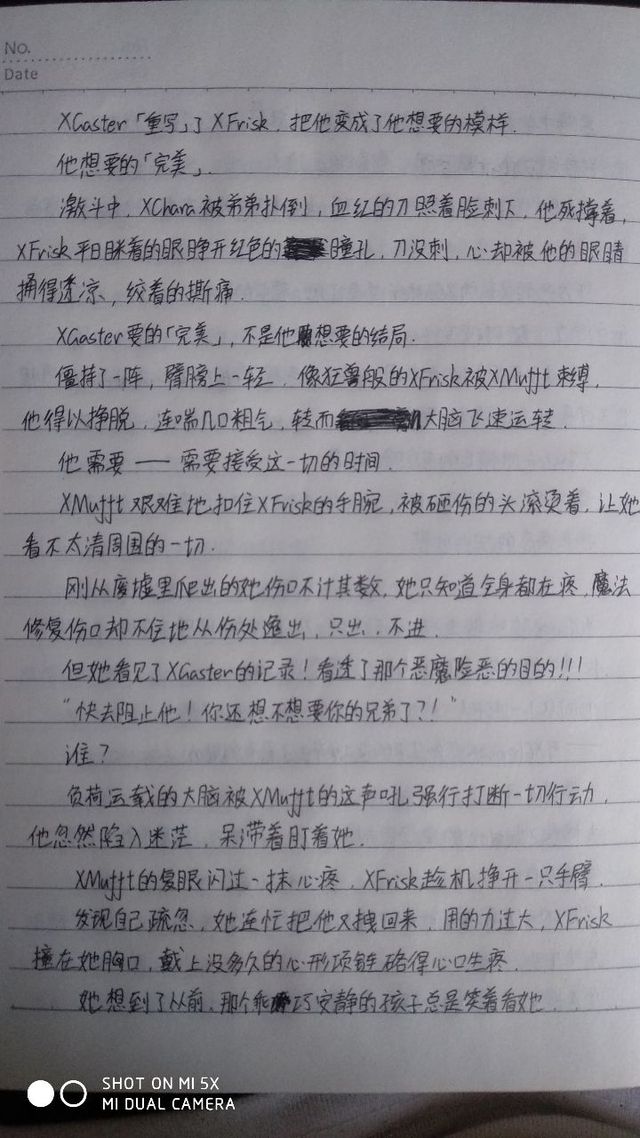 No.
Date
XGaster「重写」了XFrisk，把他变成了他想要的模样．
他想要的「完美」．
激斗中，XChara被弟弟扑倒，血红的刀照着脸刺下，他死撑着，
XFrisk平日眯着的眼睁开红色的瞳孔，刀没刺，心却被他的眼睛
捅得透凉，绞着的撕痛．
XGaster要的「完美」，不是他想要的结局．
僵持了一阵，臂膀上一轻，像狂兽般的XFrisk被XMufft束缚，
他得以挣脱，连喘几口粗气，转而大脑飞速运转．
他需要——需要接受这一切的时间．
XMufft艰难地扣住XFrisk的手腕，被砸伤的头滚烫着，让她
看不太清周围的一切．
刚从废墟里爬出的她伤口不计其数，她只知道全身都在疼，魔法
修复伤口却不住地从伤处逸出，只出．不进．
但她看见了XGaster的记录！看透了那个恶魔险恶的目的!!!
“快去阻止他！你还想不想要你的兄弟了?!”
谁？
负荷运载的大脑被XMufft的这声吼强行打断一切行动，
他忽然陷入迷茫，呆滞着盯着她．
XMufft的复眼闪过一抹心疼，XFrisk趁机挣开一只手臂．
发现自己疏忽，她连忙把他又拽回来，用的力过大，XFrisk
撞在她胸口，戴上没多久的心形项链硌得心口生疼．
她想到了从前，那个乖巧安静的孩子总是笑着看她．
SHOT ON MI 5X
MI DUAL CAMERA